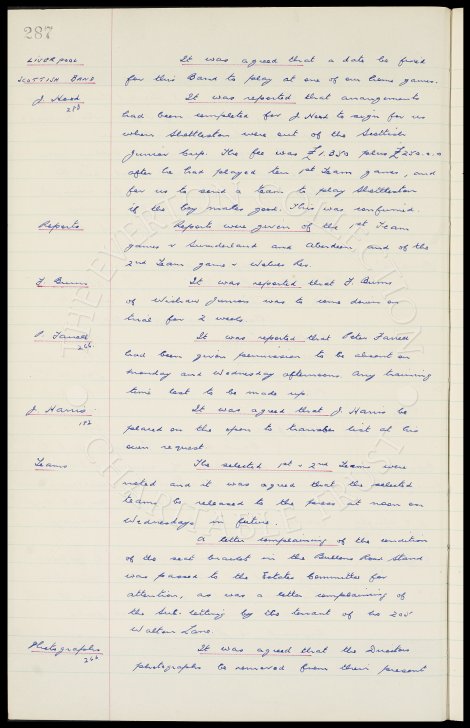 287
LIVERPOOL
SCOTTISH BAND
It was agreed that a date be fixed
for this Band to play at one of our home games.
J. Hood
288
It was reported that arrangements
had been completed for J. Hood to sign for us
when Shettleston were out of the Scottish
Junior Cup. The fee was £1,350 plus £250.0.0
after he had played ten 1st Team games, and
for us to send a team to play Shettleston
if the boy makes good. This was confirmed.
Reports
Reports were given of the 1st Team
games v Sunderland and Aberdeen, and of the
2nd Team game v Wolves Res.
F. Burns
It was reported that F. Burns
of Wishaw Juniors was to come down on
trial for 2 weeks.
P. Farrell
266.
It was reported that Peter Farrell
had been given permission to be absent on
Monday and Wednesday afternoons. Any training
time lost to be made up.
J. Harris
182
It was agreed that J. Harris be
placed on the open to transfer list at his
own request
Teams
The selected 1st & 2nd Teams were
noted and it was agreed that the selected
teams be released to the press at noon on
Wednesdays in future.
A letter complaining of the condition
of the seat bracket in the Bullens Road Stand
was passed to the Estates Committee for
attention, as was a letter complaining of
the sub-letting by the tenant of No 205
Walton Lane.
Photographs
It was agreed that the Directors
photographs be removed from their present
THE EVERTON COLLECTION
CHARITABLE TRUST